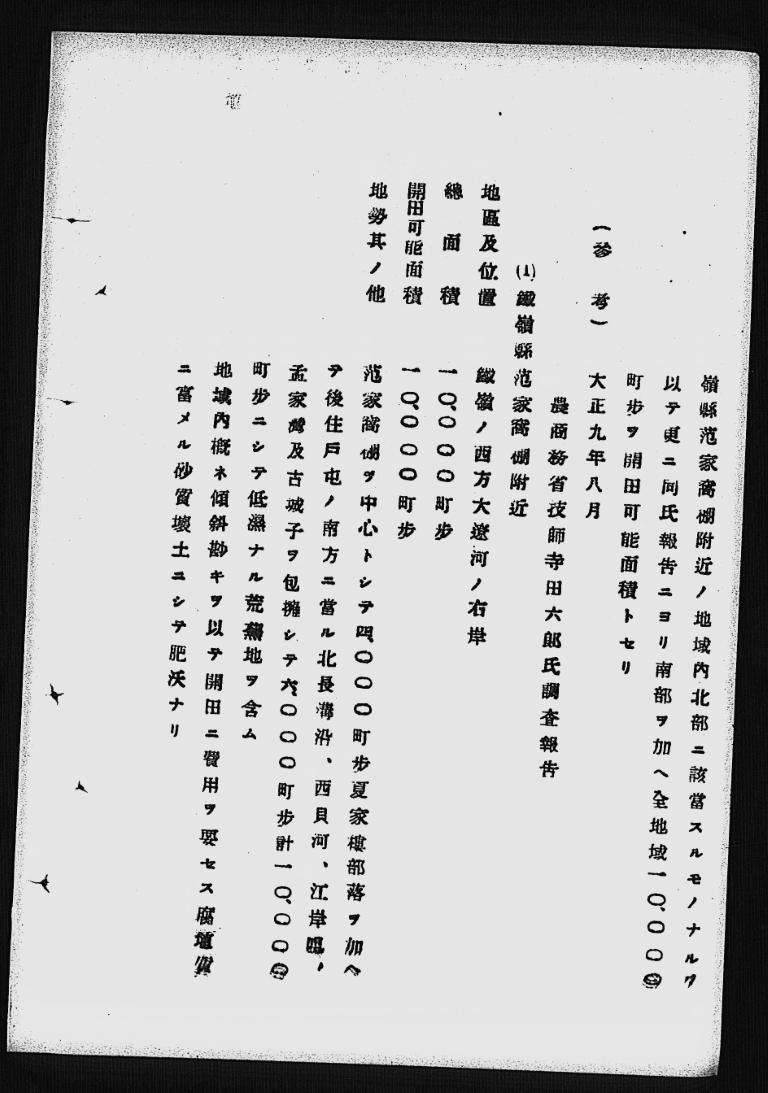 嶺縣范家窩棚附近ノ地域內北部ニ該當スルモノナルヲ
以テ更ニ同氏報告ニヨリ南部ヲ加ヘ全地域一〇、〇〇〇
町步ヲ開田可能面積トセリ
(參考) 大正九年八月
農商務省技師寺田六郞氏調査報告
(1) 鐵嶺縣范家窩棚附近
地區及位置 鐵嶺ノ西方大遼河ノ右岸
總面積 一〇、〇〇〇町步
開田可能面積 一〇、〇〇〇町步
地勢其ノ他 范家窩棚ヲ中心トシテ四、〇〇〇町步夏家樓部落ヲ加ヘ
テ後住戶屯ノ南方ニ當ル北長溝沿、西貝河、江岸
孟家灣及古城子ヲ包擁シテ六、〇〇〇町步計一〇、〇〇〇
町步ニシテ低濕ナル荒蕪地ヲ含ム
地域內槪ネ傾斜尠キヲ以テ開田ニ費用ヲ要セス腐植
ニ富メル砂質壤土ニシテ肥沃ナリ